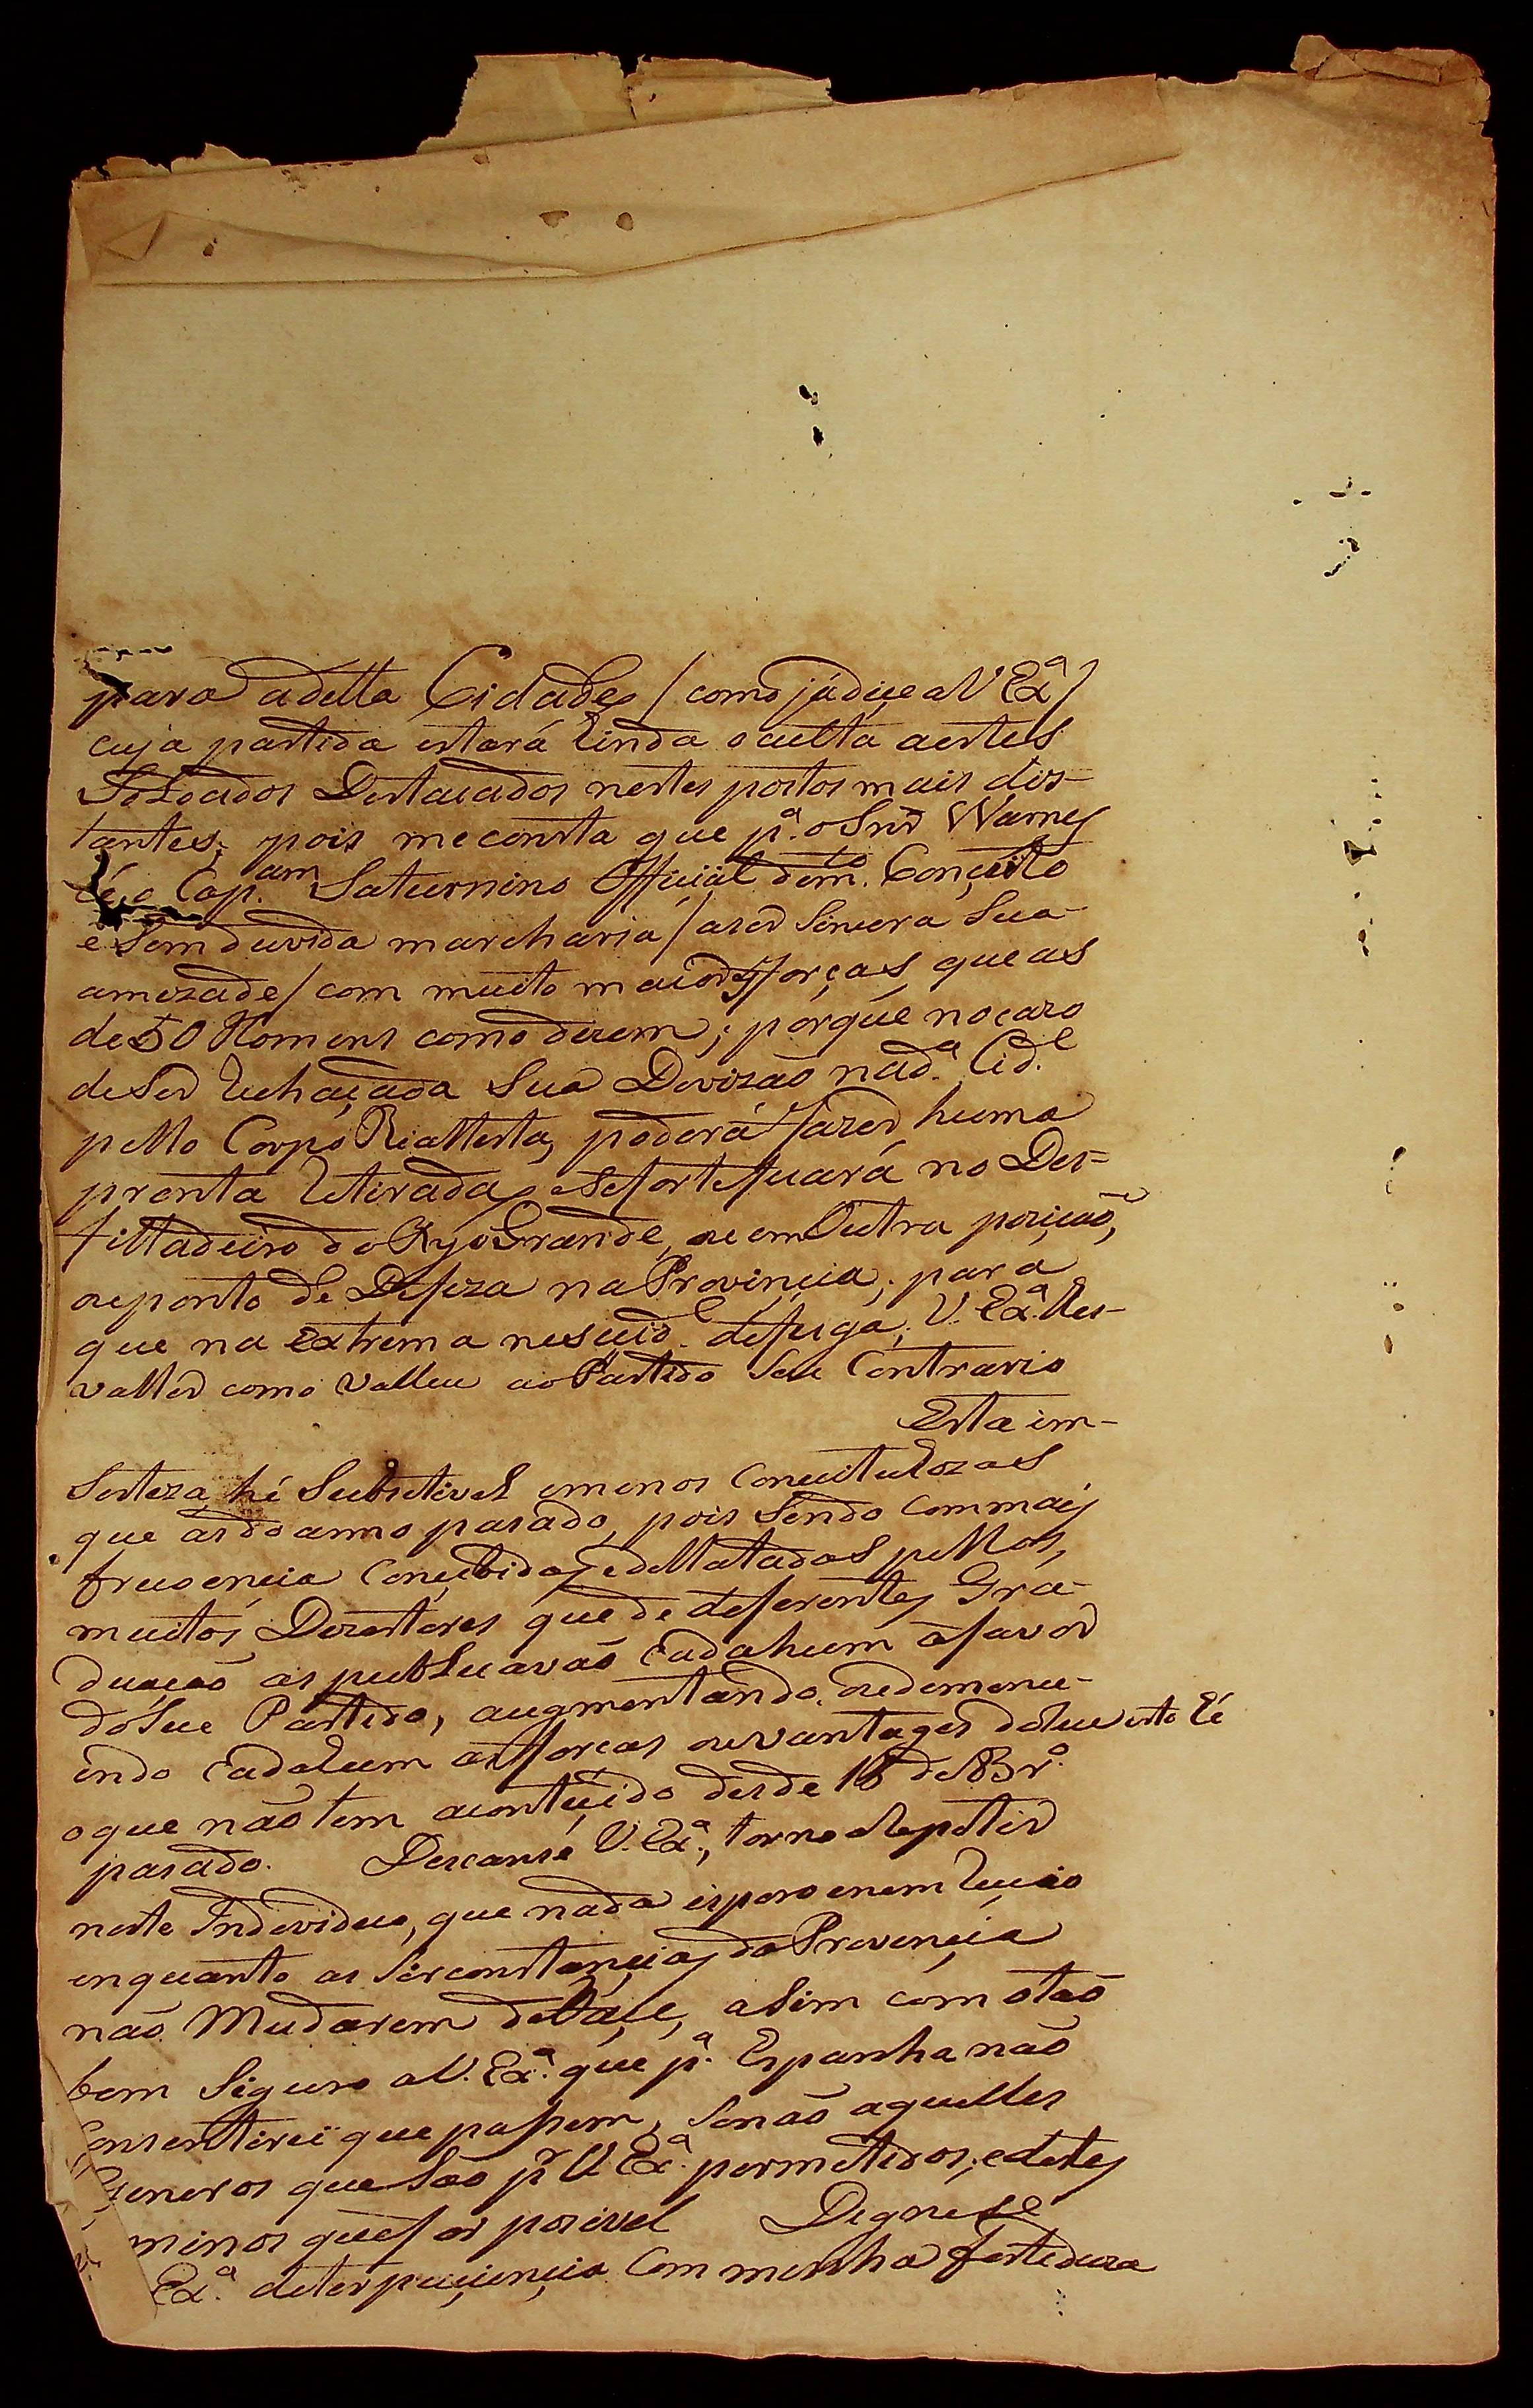 para adilla Cidade, / como já dice a V Exª /
cuja partida estará hinda oculta aestes
Soldados Destacados nestes postos mais dis-
tantes; pois meconsta que pª. o Snr Warnes
é o Cap.am Saturnino Official dem.to Conçeito
e Sem duvida marcharia / aser Sincera Sua
amezade / com muito maiores forças, que as
de 50 Homens como dizem; porque nocazo
deSer rechaçada Sua Devizaõ nad.ª Cid.e
pello Corpo Riallista, poderá fazer huma
pronta retirada, eSefortefucará no Des-
filladeiro do Ryo Grande, ou em Outra poziçaõ,
ouponto de Defeza na Provinçia; para
que na extrema nesçid.e defuga, V. Exª. lles
valler como valleu ao Partido Seu Contrario
Esta in-
serteza hé Subsetivel emenos
que as do anno pasado, pois Sendo Com mais
frequencia Conçebidas, edellatadas pellos,
muitos Dezertores que de deferentes Gra-
duaçaõ as publicavaõ Cada hum afavor
doSeu Partido, augmentando, ou demenu-
indo Cada hum as forças ou vantages doSeu
oque naõ tem aconteçido desde 18 de 8br.º
pasado. Descanse V. Exª., torno arepetir
neste Individuo, que nada espero enem reçeio
enquanto as Serconstançias, da Provençia
naõ Mudarem deface, aSim com otaõ
bem Siguro a V. Exª. que pª. Espanha naõ
Consentirei que pasem, Senaõ aquelles
Generos que Saõ pr V. Exª. permetidos, edestes
minos que for posivel Degnese
Exª. deter paçiençia Com minha